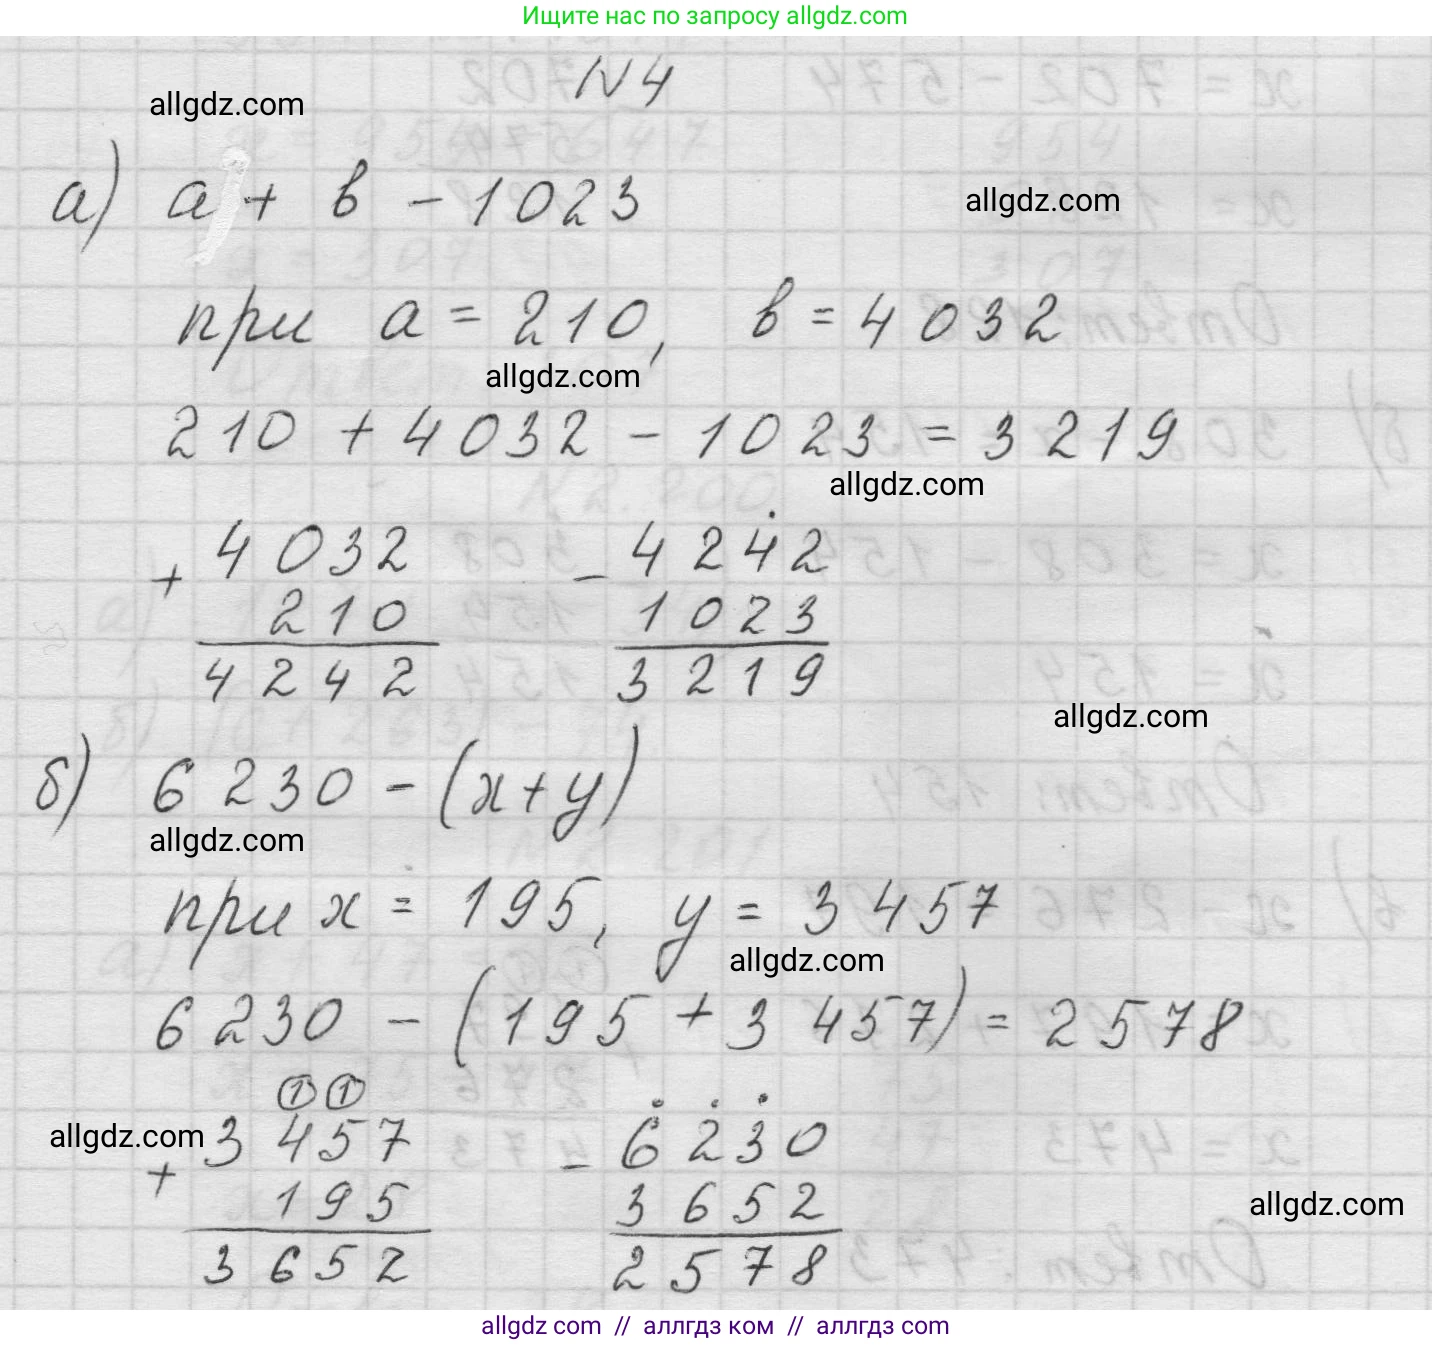 Ищите нас по запросу allgdz.com
N4
allgdz.com
а) a + b - 1023
allgdz.com
при a = 210, b = 4032
allgdz.com
210 + 4032 - 1023 = 3219
allgdz.com
+ 4032 - 4242
210 1023
4242 3219
allgdz.com
б) 6230 - (x + y)
allgdz.com
при x = 195, y = 3457
allgdz.com
6230 - (195 + 3457) = 2578
1 1
allgdz.com
+ 3457 - 6230
195 3652
allgdz.com
3652 2578
allgdz com // аллгдз ком // аллгдз com